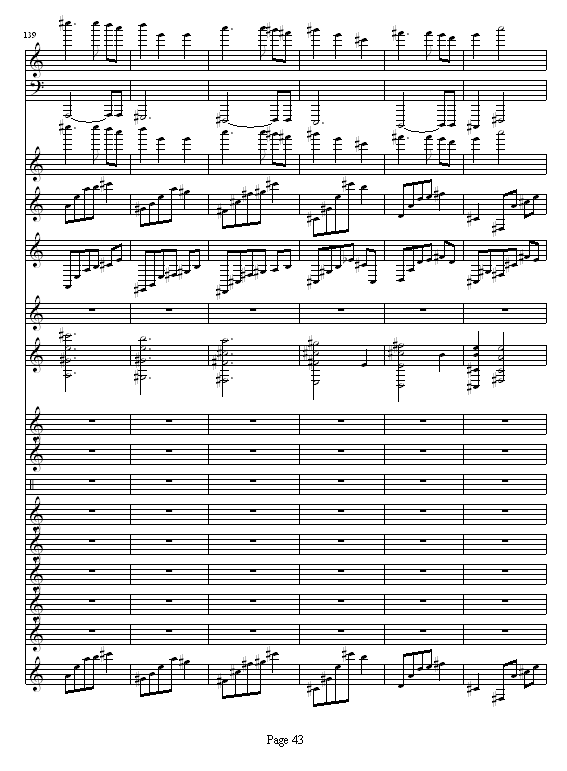 139
Page 43